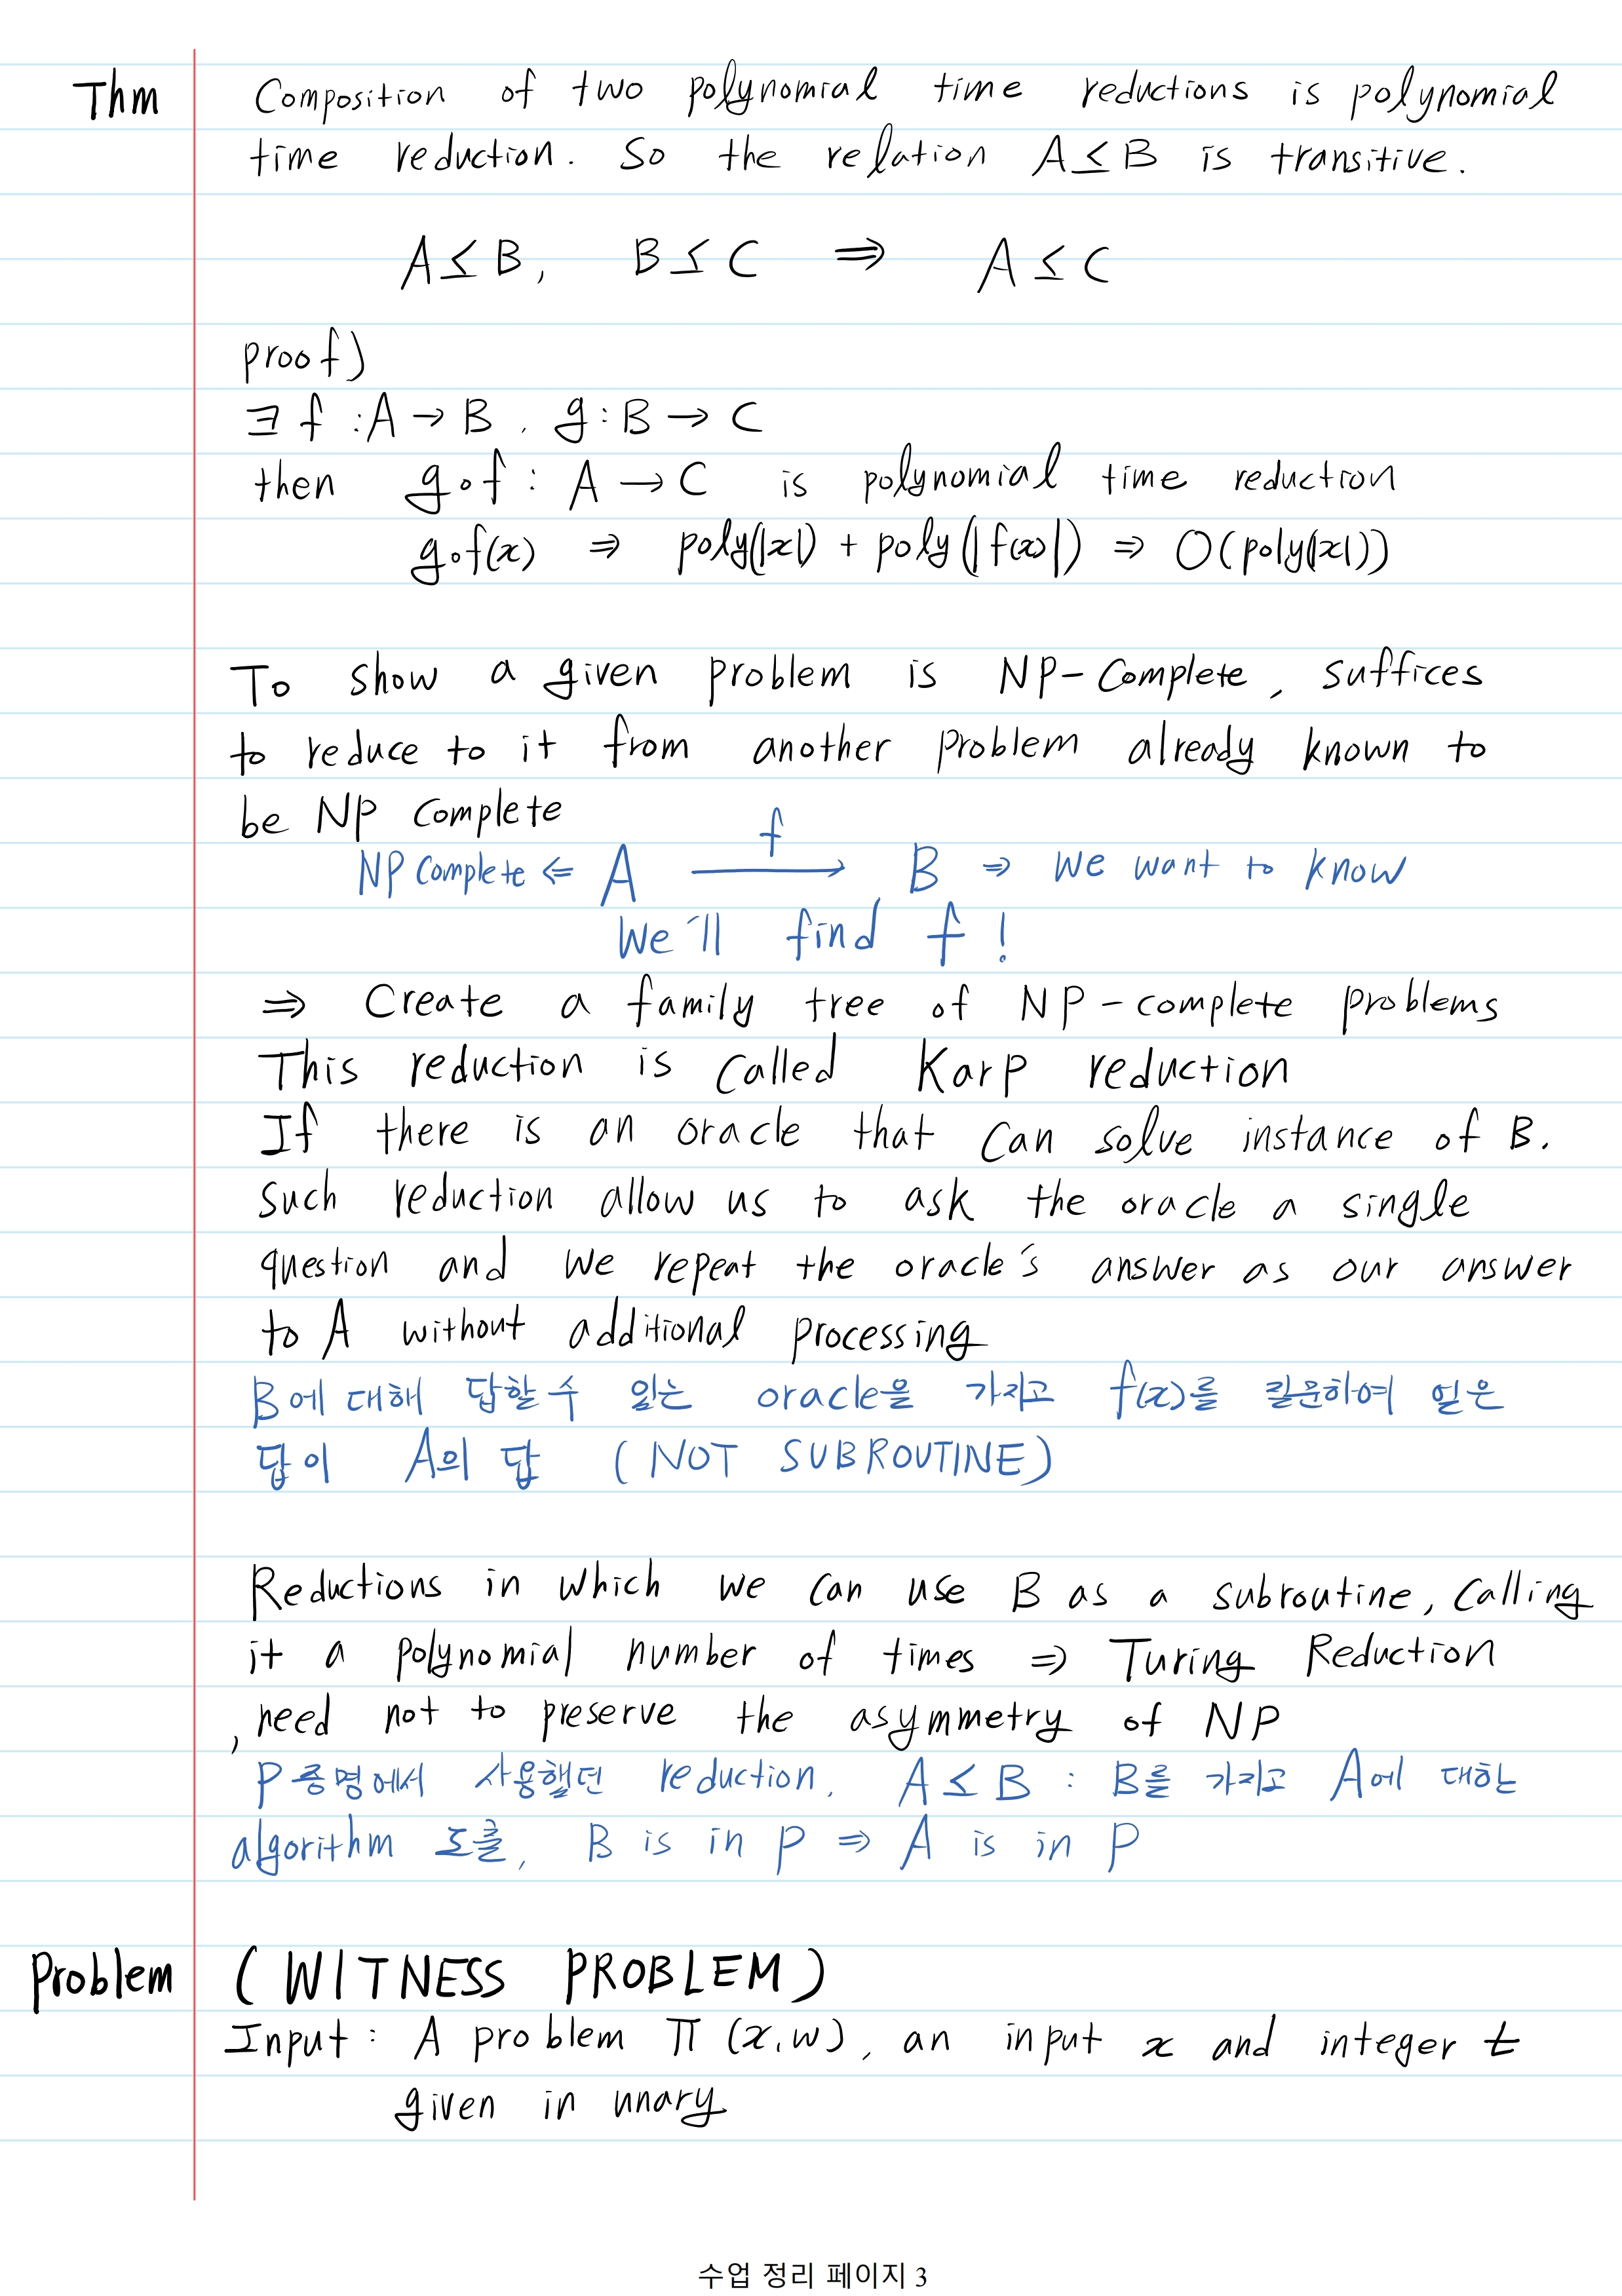 Thm Composition of two polynomial time reductions is polynomial
time reduction. So the relation A≤B is transitive.
A≤B, B≤C ⇒ A≤C
proof)
∃ f : A → B, g : B → C
then g∘f : A → C is polynomial time reduction
g∘f(x) ⇒ poly(|x|) + poly(|f(x)|) ⇒ O(poly(|x|))
To show a given problem is NP-Complete, suffices
to reduce to it from another problem already known to
be NP Complete
f
NP Complete ⇐ A → B ⇒ We want to know
We'll find f !
⇒ Create a family tree of NP-complete problems
This reduction is called Karp reduction
If there is an oracle that can solve instance of B.
Such reduction allow us to ask the oracle a single
question and we repeat the oracle's answer as our answer
to A without additional processing
B에 대해 답할 수 있는 oracle을 가지고 f(x)를 질문하여 얻은
답이 A의 답 (NOT SUBROUTINE)
Reductions in which we can use B as a subroutine, calling
it a polynomial number of times ⇒ Turing Reduction
, need not to preserve the asymmetry of NP
P 증명에서 사용했던 reduction. A≤B : B를 가지고 A에 대한
algorithm 도출, B is in P ⇒ A is in P
Problem (WITNESS PROBLEM)
Input : A problem Π(x,w), an input x and integer t
given in unary
수업 정리 페이지 3